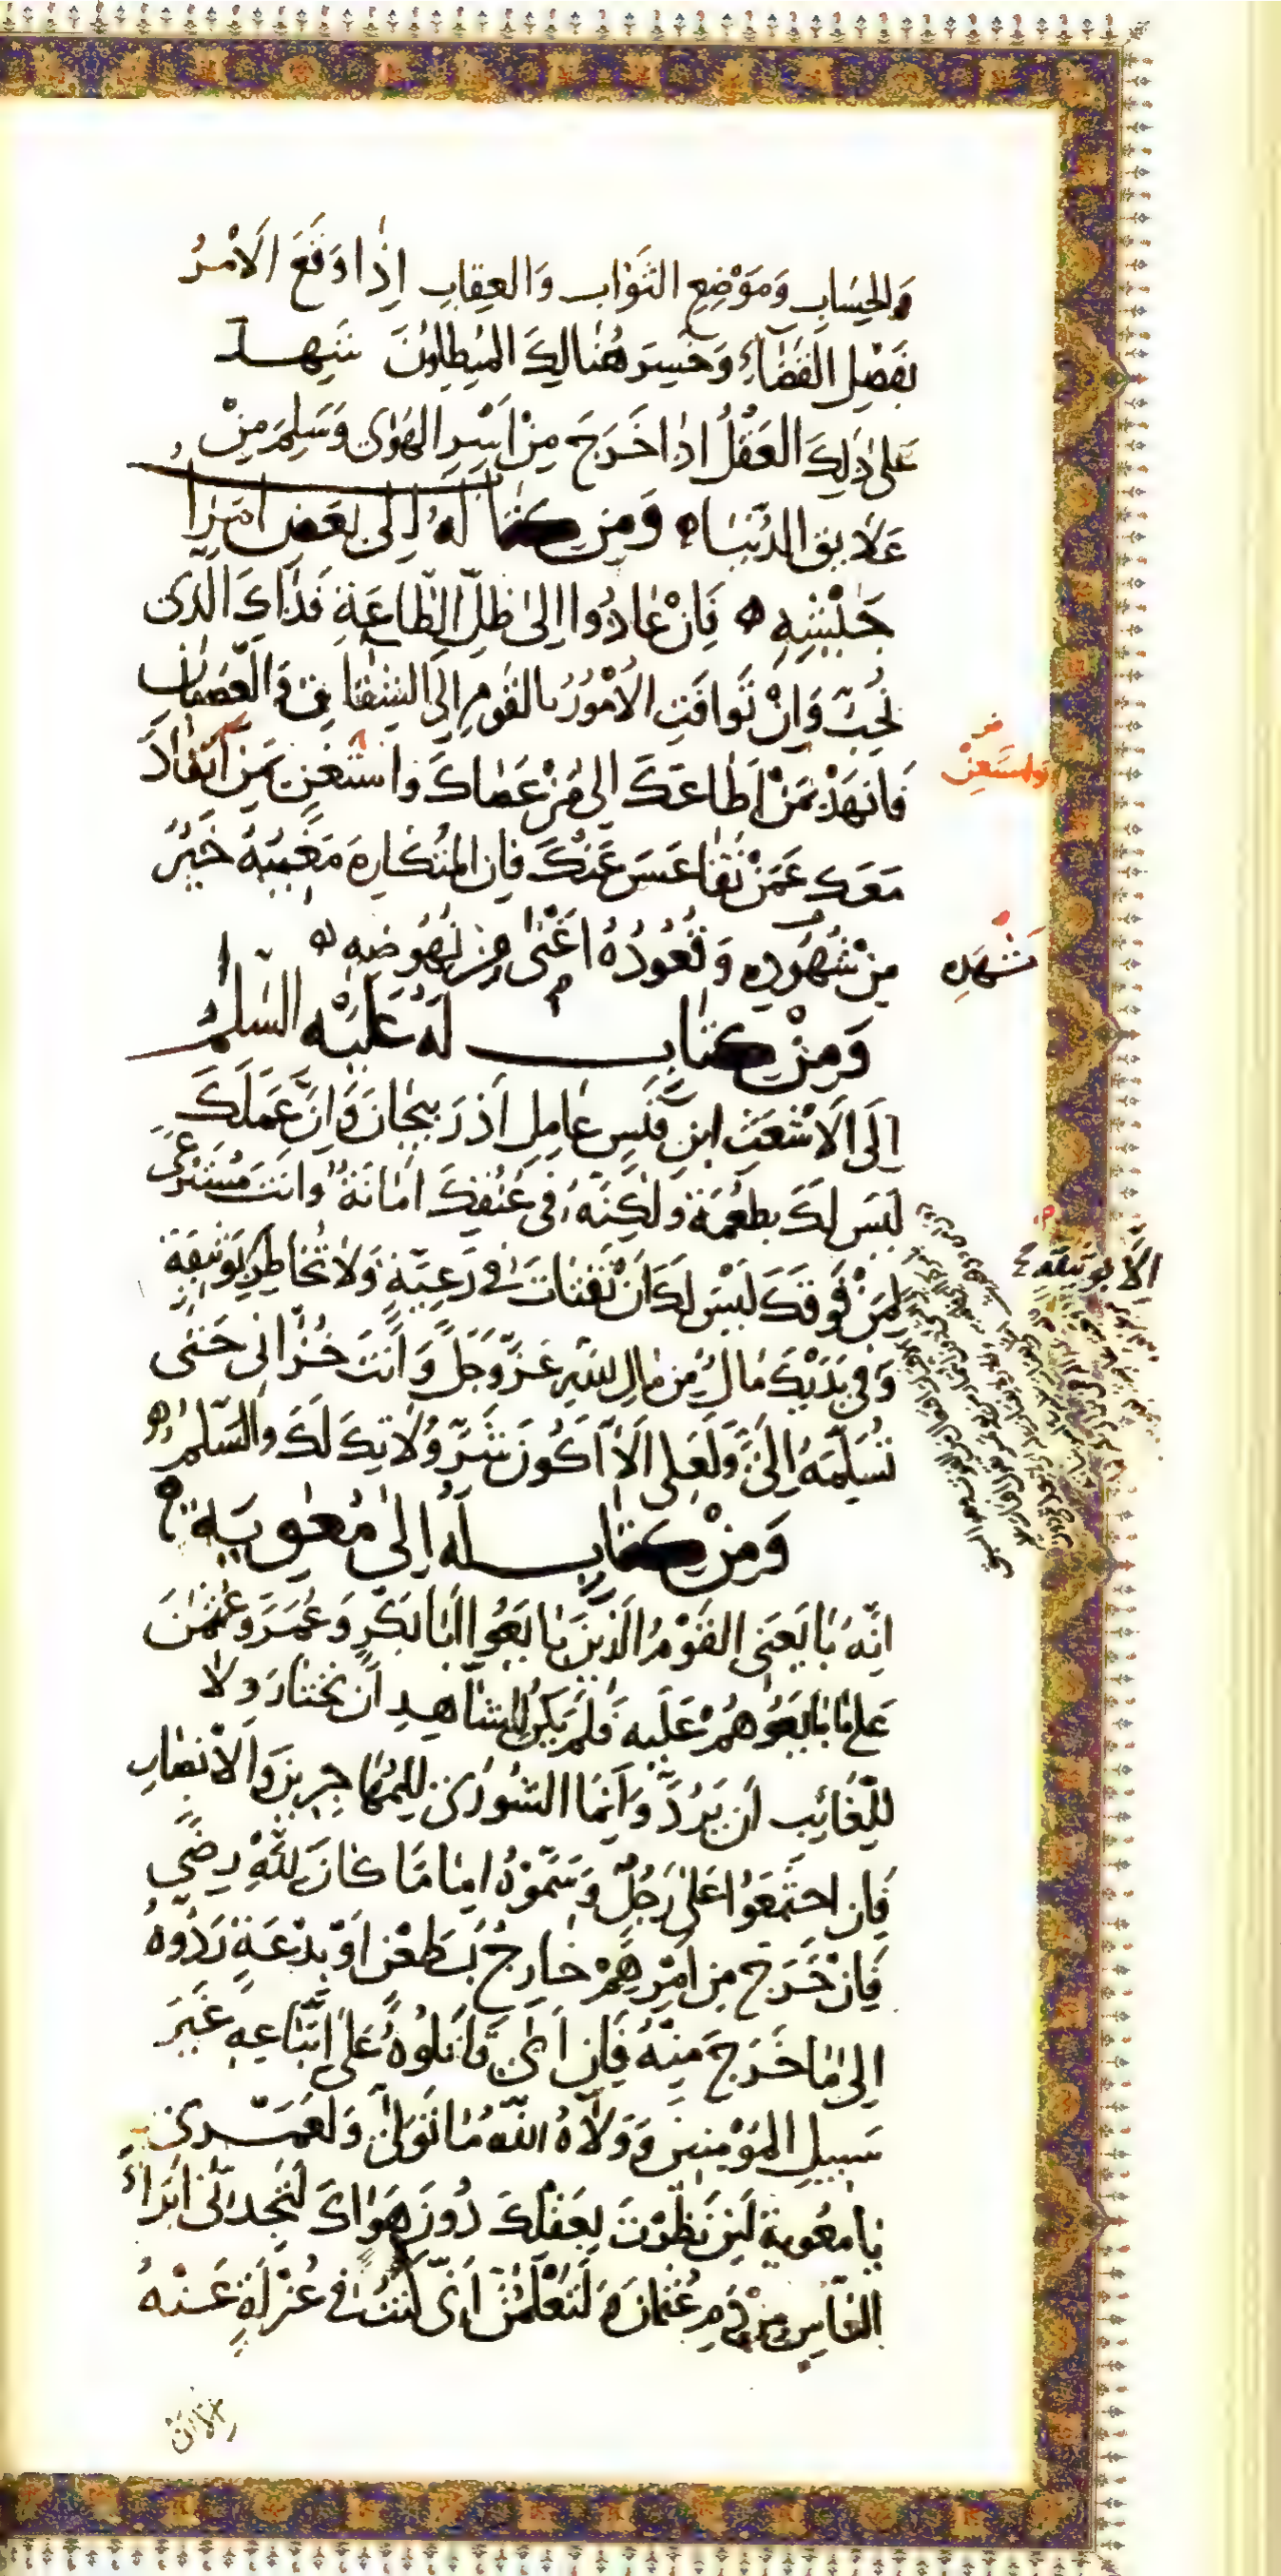 وَالحِسَابِ وَمَوْضِعِ الثَوٰابِ وَالعِقٰابِ اِذٰا وَقَعَ الاَمْرُ
بفَصْلِ القَضٰاءِ وَخَسِرَ هُنٰالِكَ المُبْطِلوُنَ شَهِدَ
عَلىٰ ذٰلِكَ العَقْلُ اِذٰا خَرَجَ مِنْ اَسْرِ الهَوٰى وَسَلِمَ مِنْ
عَلاٰيقِ الدُّنْيٰا ه وَمِن كِتٰاب لَهُ اِلىٰ بَعْضِ اُمَرٰا
جَيْشِهِ ه فَاِنْ عٰادُوا اِلىٰ ظِلِّ الطّٰاعَةِ فَذٰاكَ الَّذى
نُحِبُّ وَاِنْ تَوافَتِ الاُمُورُ بالقَومِ اِلَى الشِقٰاقِ وَالعِصيٰانِ
فَانهَدْ بمَنْ اَطٰاعَكَ اِلىٰ مَنْ عَصٰاكَ وَاسْتَغْنِ بمَنِ انقٰادَ
مَعَكَ عَمَّنْ تَقٰاعَسَ عَنْكَ فاِنَ المُتَكٰارِهَ مَغِيبُهُ خَيْرٌ
مِنْ شُهُودِهِ وَقُعُودُهُ اَغْنىٰ مِن نُهُوضِهِ ه
وَمِنْ كِتٰابٍ لَهُ عَلَيْهِ السَّلٰمُ
اِلَى الاَشْعَثِ ابنِ قَيسٍ عٰامِلِ اَذرَبيجٰانَ وَاِنَّ عَمَلَكَ
لَيسَ لَكَ بطُعْمَة وَلٰكِنَّهُ فى عُنُقِكَ اَمٰانَةٌ وَانتَ مُسْتَرعىً
لِمَنْ فَوقَكَ لَيْسَ لَكَ اَنْ تَفتٰاتَ فى رَعِيَّةٍ وَلاٰ تُخٰاطِرَ بوَثيقَةٍ
وَفى يَدَيْكَ مٰالٌ مِن مٰالِ اللهِ عَزَّ وَجَلَّ وَاَنتَ خُزّٰانى حَتّىٰ
تُسَلِّمَهُ اِلَىَّ وَلَعَلّى اَلاّٰ اَكُونَ شَرَّ وُلاٰتِكَ لَكَ وَالسَّلٰمُ ه
وَمِنْ كِتٰابٍ لَهُ اِلىٰ مُعٰوِيَة
اِنَّهُ بٰايَعَنىِ القَوْمُ الَّذينَ بٰايَعُوا اَبٰا بَكْرٍ وَعُمَرَ وَعُثمٰنَ
عَلىٰ مٰا بٰايَعُوهُمْ عَلَيهِ فَلَم يَكُن لِلشّٰاهِدِ اَن يَختٰارَ وَلاٰ
لِلغٰائِبِ اَن يَرُدَّ وَاِنمَا الشُورىٰ لِلمُهٰاجِرينَ وَالاَنْصٰارِ
فَاِنِ اجتَمَعُوا عَلىٰ رَجُلٍ وَسَمَّوْهُ اِمٰامًا كٰانَ لِلّٰهِ رِضًى
فَاِنْ خَرَجَ مِن اَمْرِهِمْ خٰارِجٌ بطَعْنٍ اَوْ بِدْعَةٍ رَدُّوهُ
اِلىٰ مٰا خَرَجَ مِنْهُ فَاِن اَبىٰ قٰاتَلُوهُ عَلىٰ اتّبٰاعِهِ غَيرَ
سَبيلِ المُؤْمِنينَ وَوَلاّٰهُ اللهُ مٰا تَوَلىّٰ وَلَعَمْرى
يٰا مُعٰوية لَئِن نَظَرْتَ بعَقْلِكَ دُونَ هَوٰاكَ لَتَجِدَنّى اَبرَاَ
النّٰاسِ مِنْ دَمِ عُثمٰانَ وَلَتَعْلَمَنَّ اَنّى كُنتُ فى عُزْلَةٍ عَنْهُ
وليستَعِنْ
مَشْهَدِه
اِلاّٰ بوَثيقَة